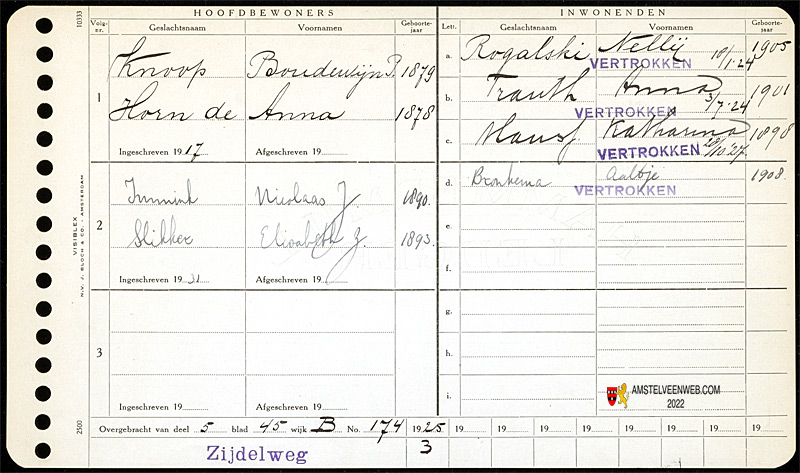 HOOFDBEWONERS
INWONENDEN
Volg-nr. Geslachtsnaam Voornamen Geboorte-jaar
Lett. Geslachtsnaam Voornamen Geboorte-jaar
1
Knoop Boudewijn P. 1879
Horn de Anna 1878
Ingeschreven 1917 Afgeschreven 19
2
Immink Nicolaas J 1890.
Slikker Elisabeth J. 1893.
Ingeschreven 1931 Afgeschreven 19
3
Ingeschreven 19 Afgeschreven 19
a. Rogalski Nellij 1905
VERTROKKEN 18/1·24
b. Trauth Anna 1901
VERTROKKEN 3/7·24
c. Katharina 1898
VERTROKKEN /10·27
d. Bronkema Aaltje 1908.
VERTROKKEN
e.
f.
g.
h.
i.
AMSTELVEENWEB.COM
2022
Overgebracht van deel 5 blad 45 wijk B No. 174 1925 19 19 19 19 19 19 19 19
Zijdelweg 3
10333
VISIBLEX
N.V. J. BLOCH & CO. / AMSTERDAM
2500